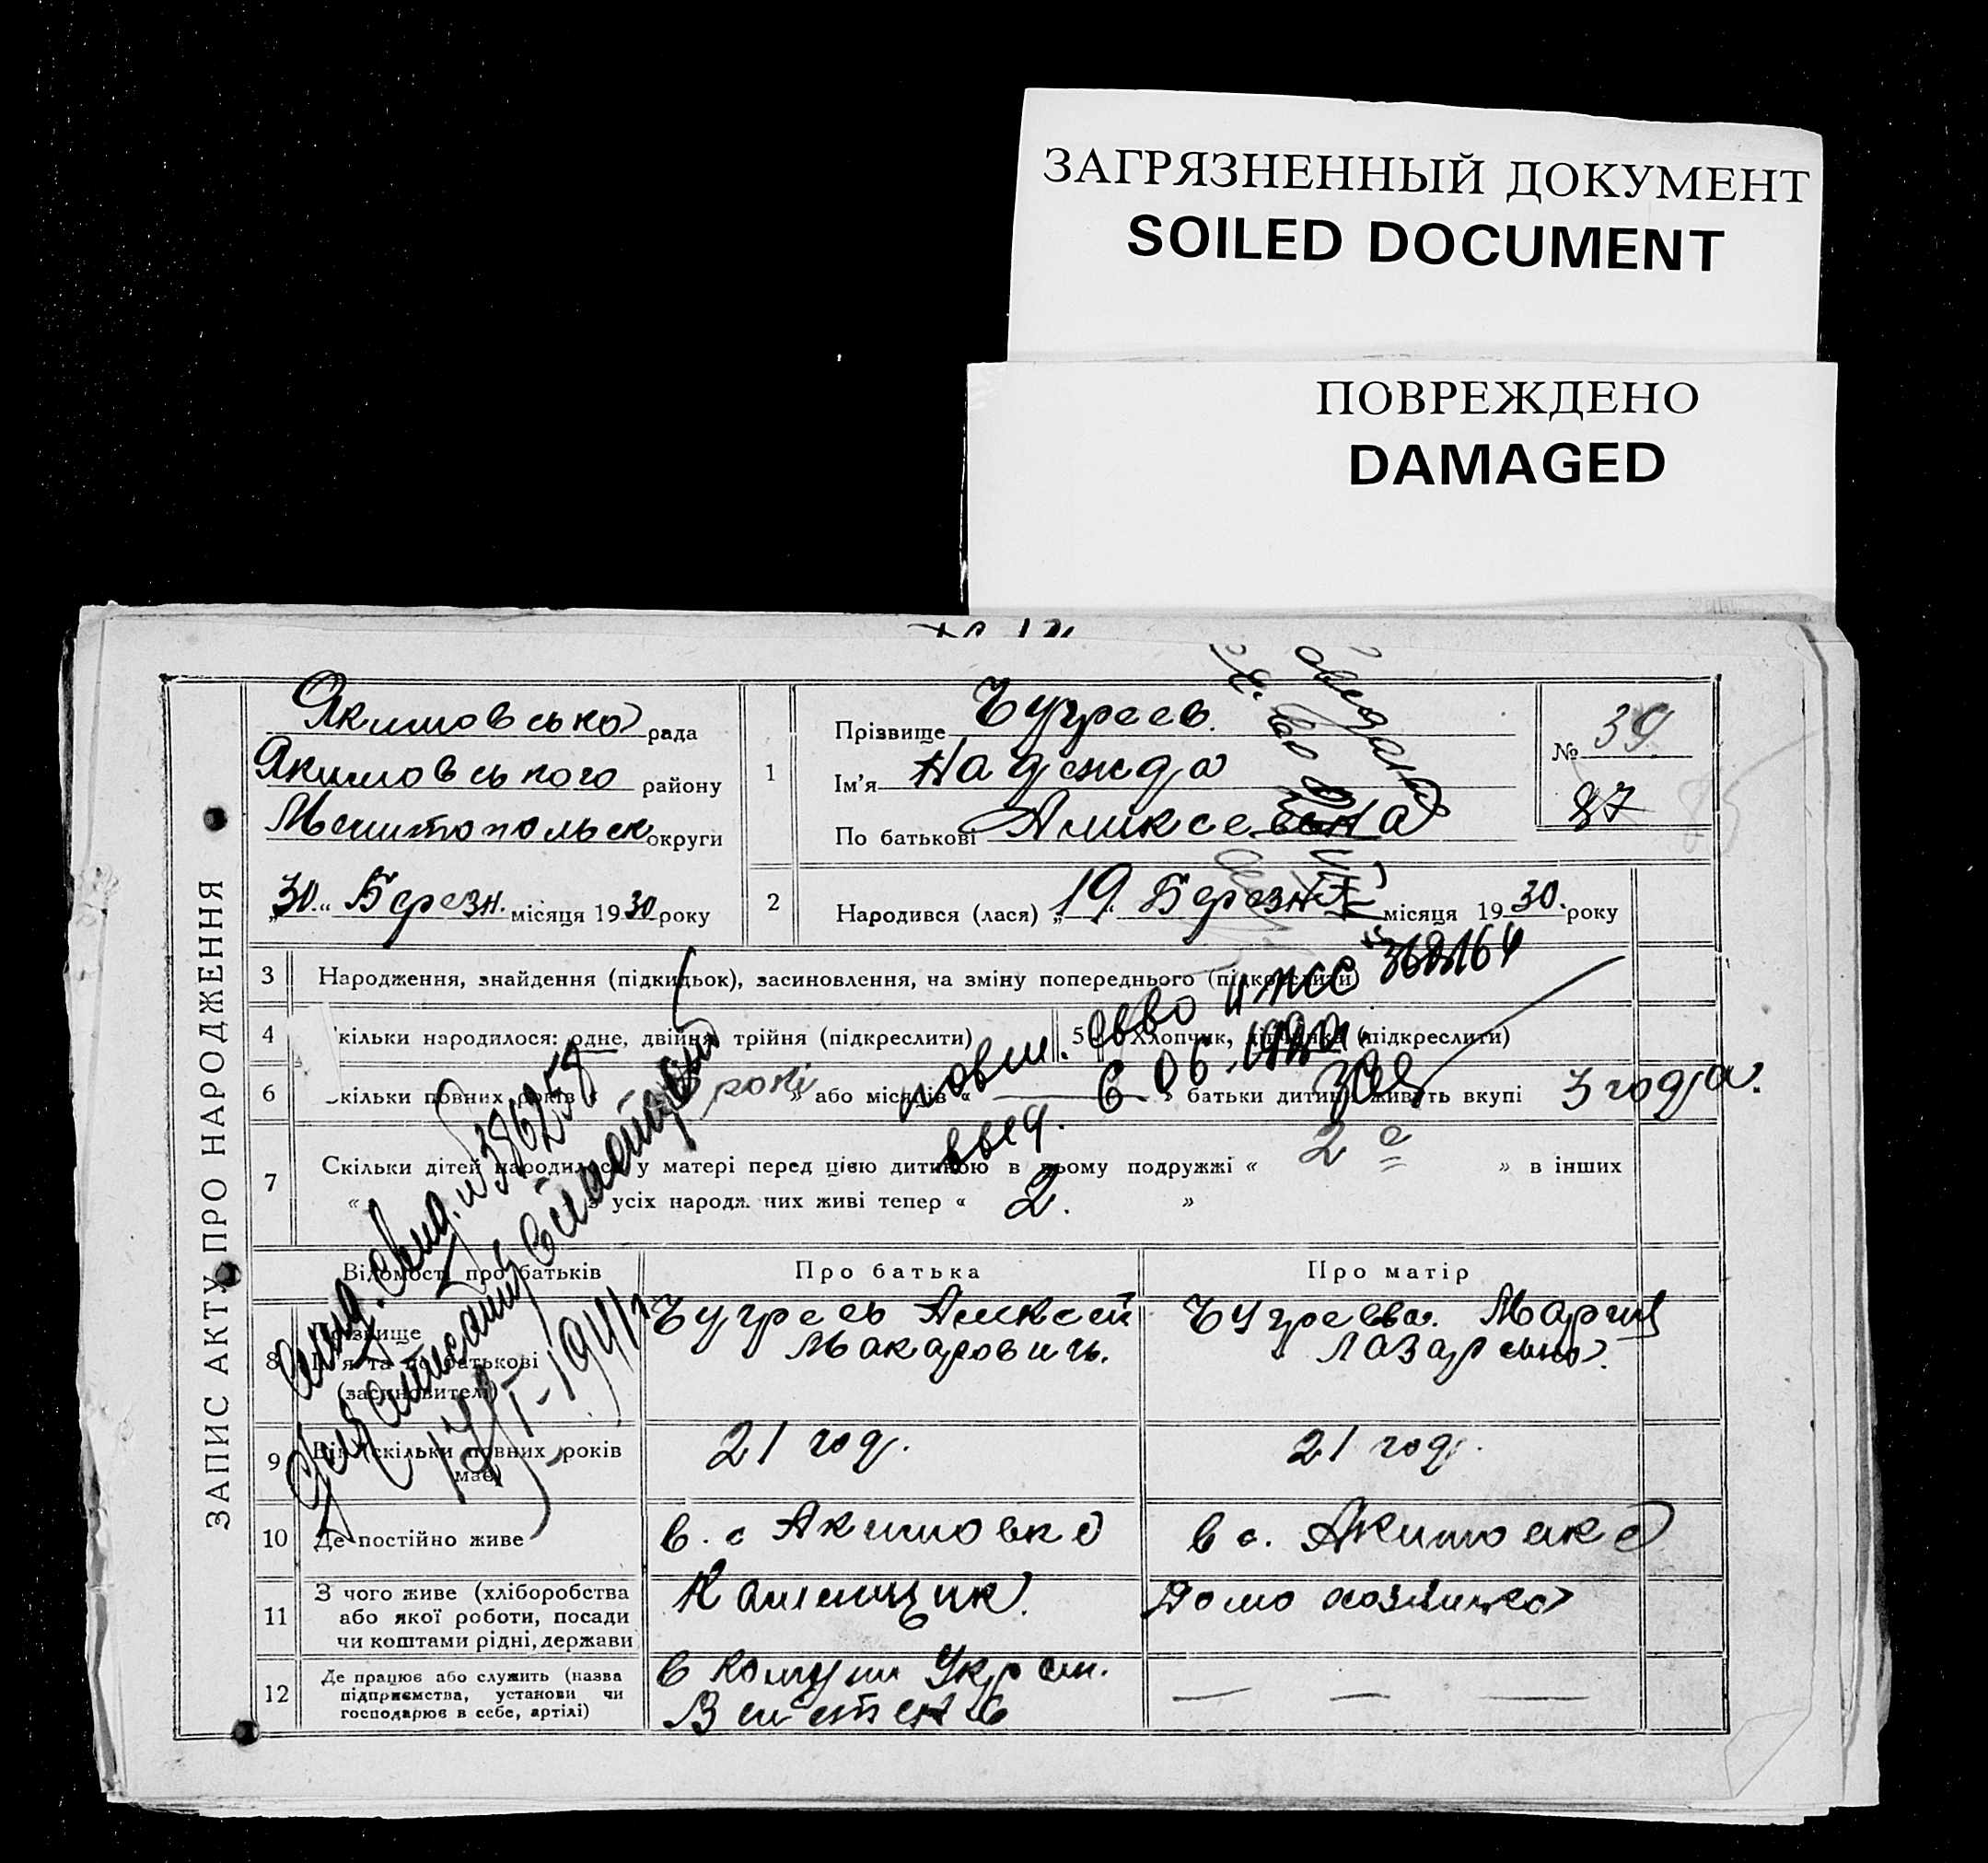 ЗАГРЯЗНЕННЫЙ ДОКУМЕНТ
SOILED DOCUMENT
ПОВРЕЖДЕНО
DAMAGED
ЗАПИС АКТУ ПРО НАРОДЖЕННЯ
Якимовська рада
Якимовського район у
Мелитопольск округи
„30“ Березн. місяця 1930 року
1
Прізвище Чугреев.
Ім'я Надежда
По батькові Алик се евна
№ 39
87
2
Народився (лася) „19“ Березня місяця 1930. року
3 Народження, знайдення (підкидьок), засиновлення, на зміну попереднього (підкреслити)
4 кільки народилося: одне, двійня, трійня (підкреслити)
5 Хлопчик, дівчинка (підкреслити)
6 кільки повних років « роки » або місяців « » батьки дитини живуть вкупі 3 года.
7 Скільки дітей народилося у матері перед цією дитиною в цьому подружжі « 2 е » в інших
« » з усіх народж. них живі тепер « 2. »
повт. св-во
6 06
выд.
1941
Відомості про батьків
Про батька
Про матір
8 Прізвище
Ім'я та по батькові
(засиновителі)
Чугреев Алексей
Макарович.
Чугреева. Мария
Лазаревна.
9 Вік (скільки повних років
має)
21 год.
21 год.
10 Де постійно живе
в. с Акимовке
в с. Акимовке
11 З чого живе (хліборобства
або якої роботи, посади
чи коштами рідні, держави
Каменщик.
Домо хозяйка
12 Де працює або служить (назва
підприємства, установи чи
господарює в себе, артілі)
в
— — —